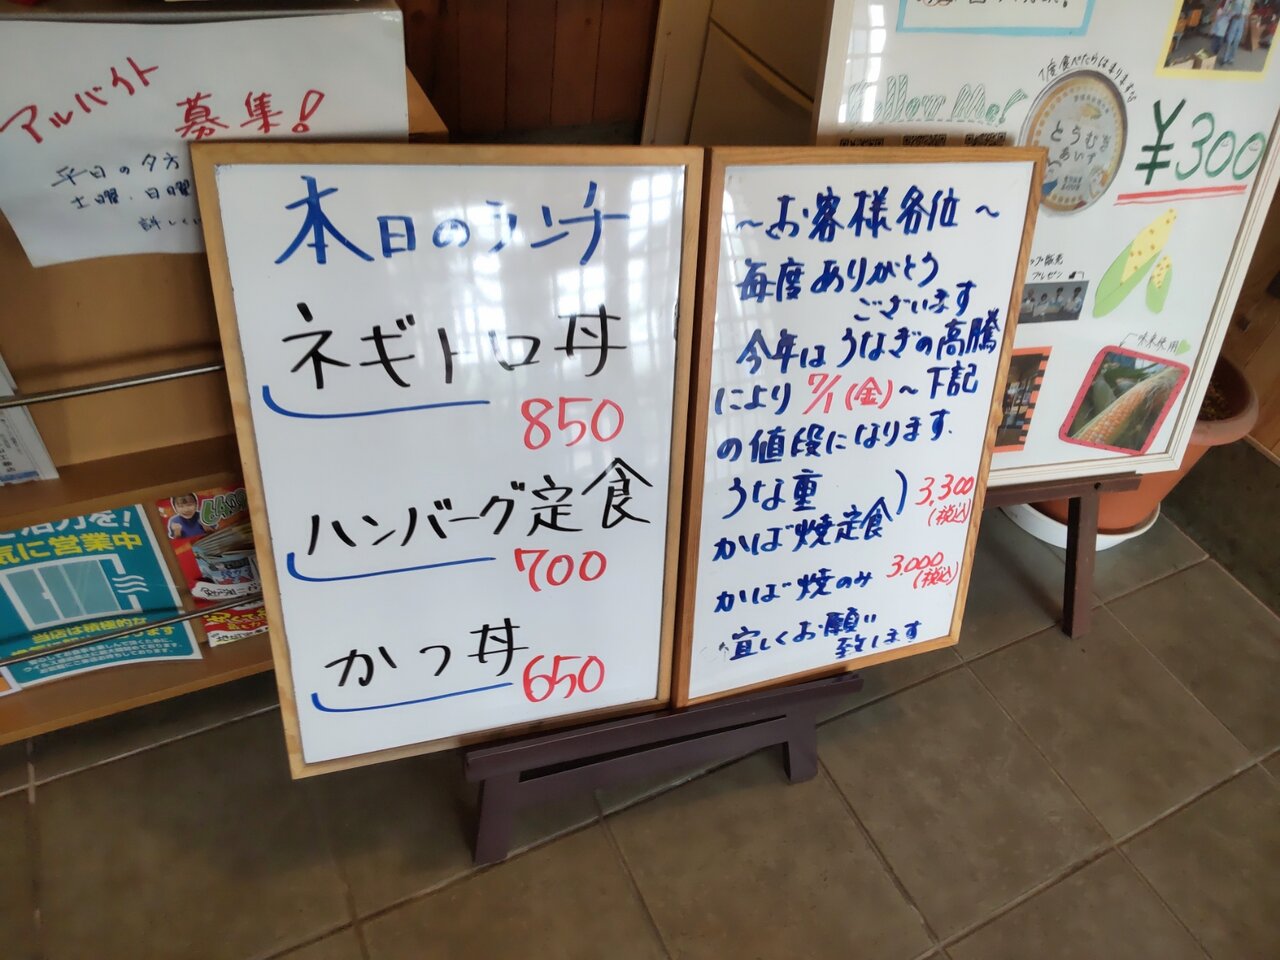 アルバイト
募集!
平日の夕方
土曜、日曜
本日のランチ
ネギトロ丼
850
ハンバーグ定食
700
かつ丼
650
〜お客様各位〜
毎度ありがとう
ございます
今年はうなぎの高騰
により 7/1(金)〜下記
の値段になります.
うな重
かば焼定食) 3,300
(税込)
かば焼のみ 3.000
(税込)
宜しくお願い
致します
Follow Me!
1度食べたらはまります
とうむぎ
あいす
¥300
に営業中
当店は積極的な